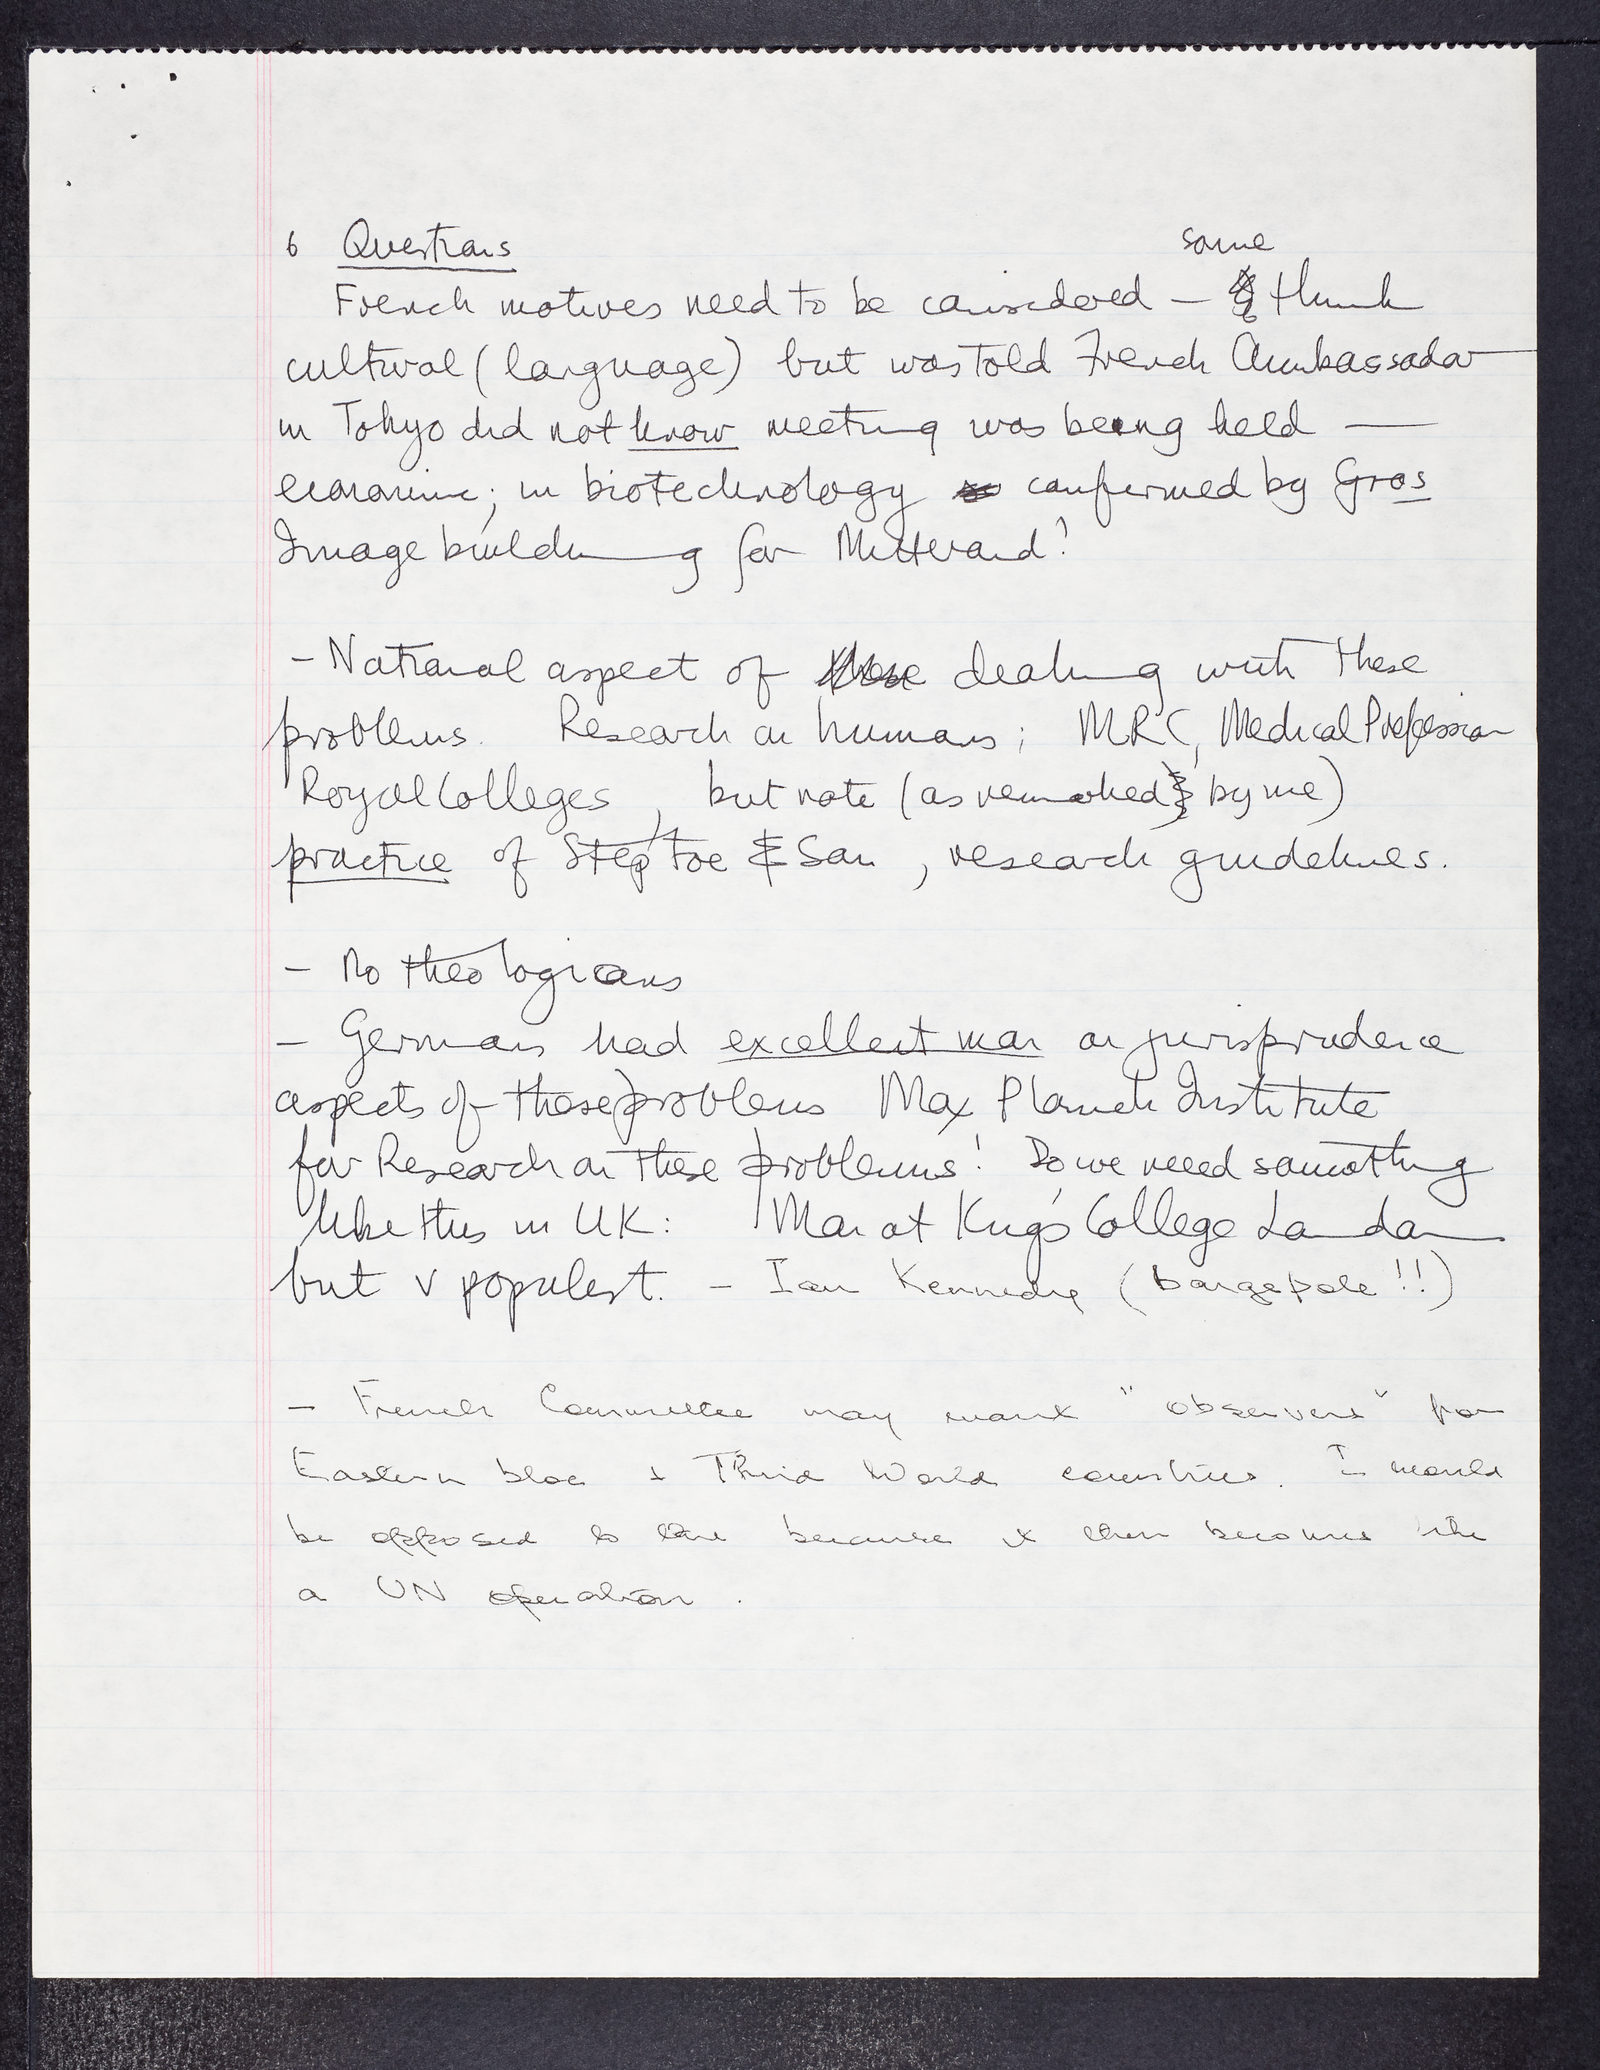 6 Questions
some
French motives need to be considered — think
cultural (language) but was told French Ambassador
in Tokyo did not know meeting was being held —
economic; in biotechnology confirmed by Gros
Image building for Mitterand?
- National aspect of these dealing with these
problems. Research on humans; MRC, Medical Profession
Royal Colleges, but note (as remarked by me)
practice of Steptoe & Son, research guidelines.
- No theologians
- Germans had excellent man on jurisprudence
aspects of these problems Max Planck Institute
for Research on these problems! Do we need something
like this in UK: Man at King's College London
but v populist. - Ian Kennedy (bargepole!!)
- French Committee may want "observers" from
Eastern bloc & Third World countries. I would
be opposed to this because it then becomes like
a UN operation.